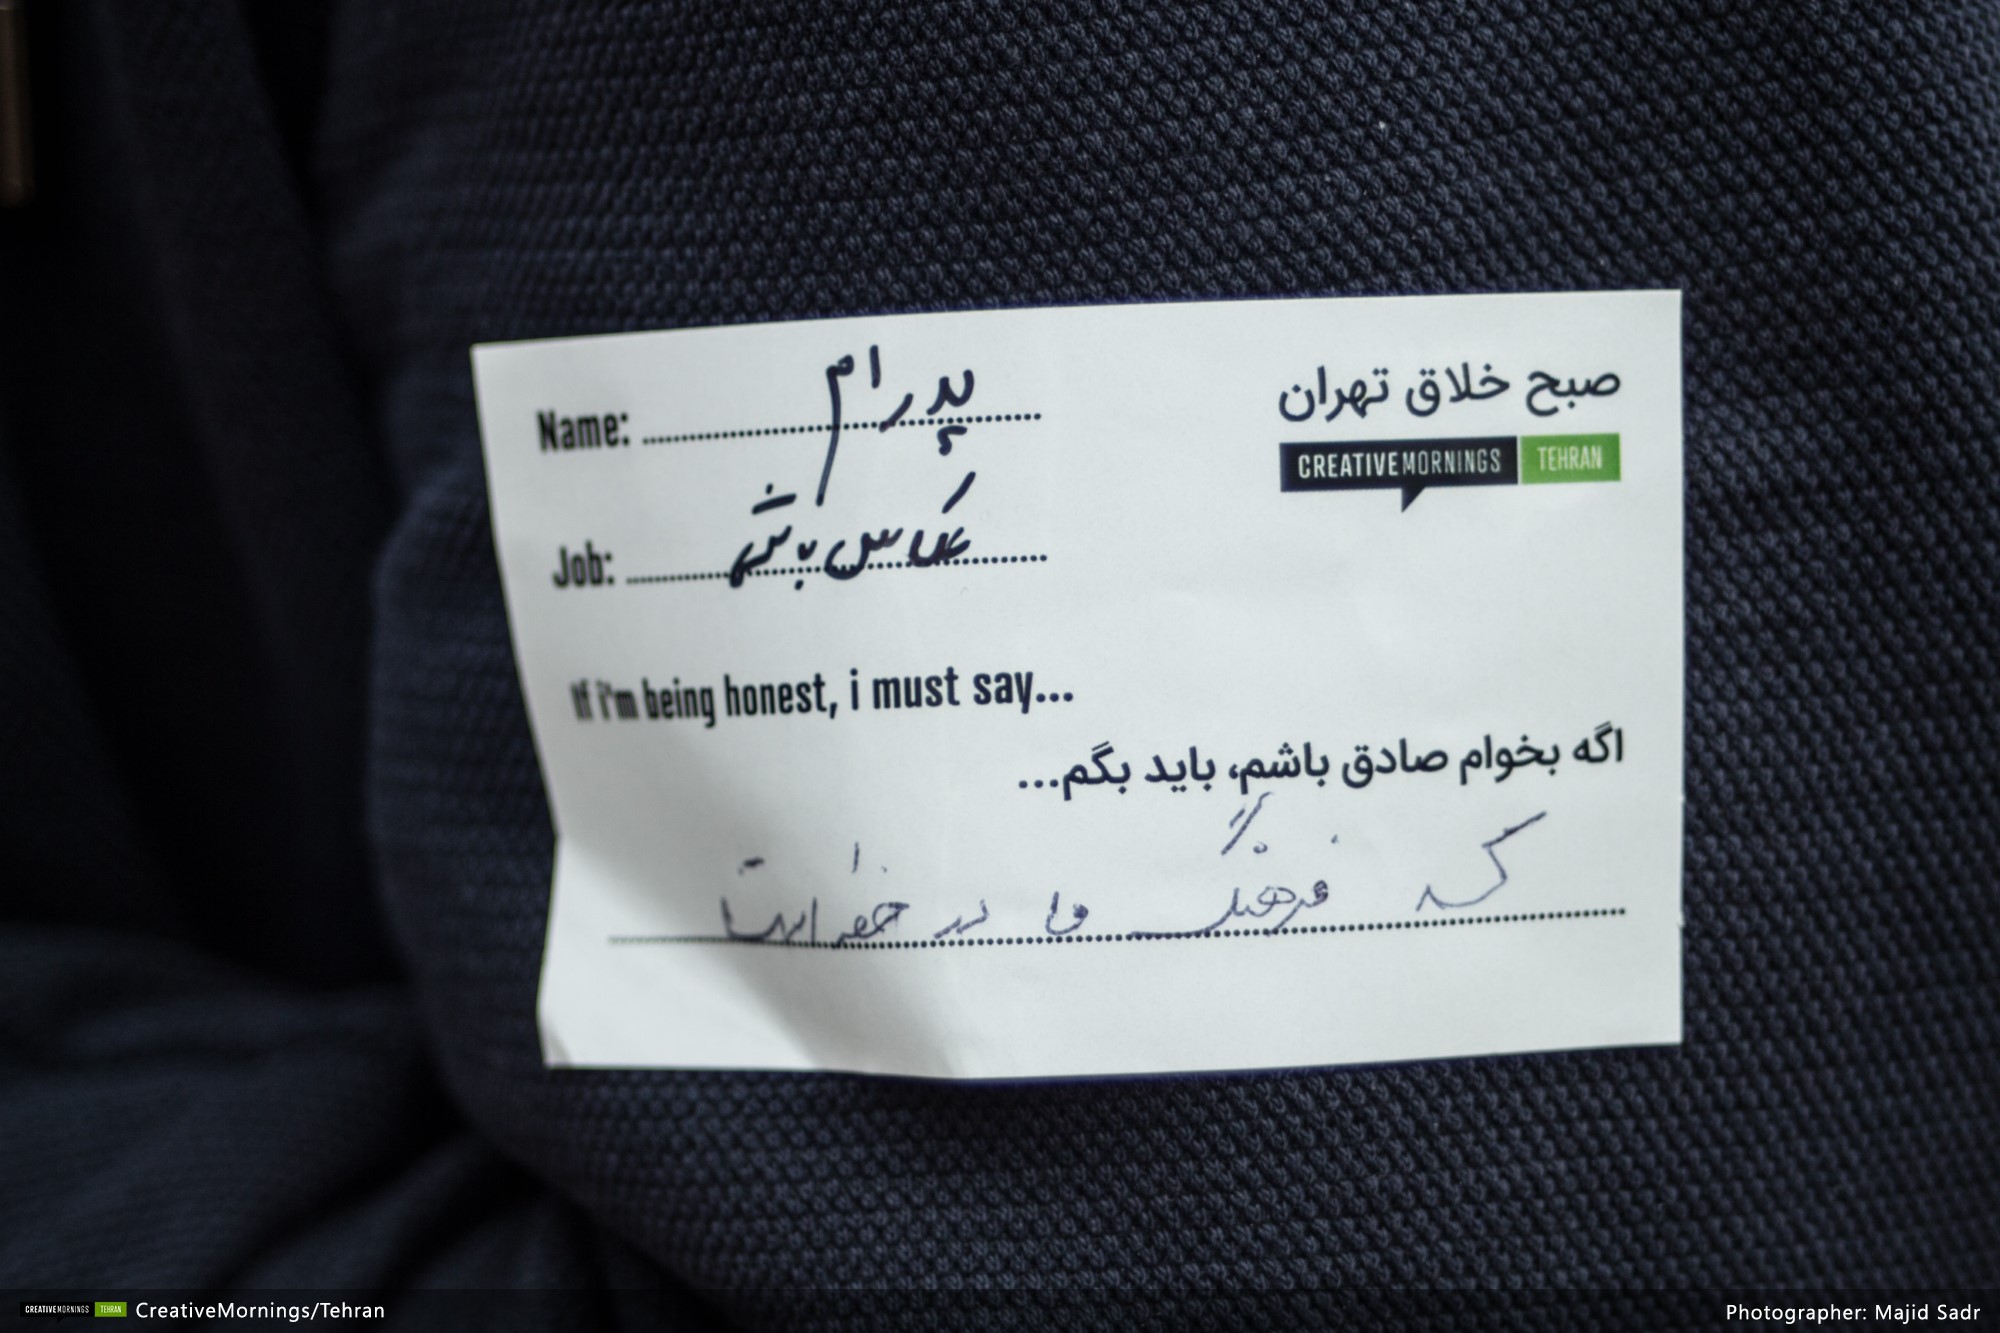 صبح خلاق تهران
CREATIVEMORNINGS TEHRAN
Name: پدرام
Job: عکاس باشی
If i'm being honest, i must say...
اگه بخوام صادق باشم، باید بگم...
که فرهنگ ما در خطر است
CREATIVEMORNINGS TEHRAN CreativeMornings/Tehran
Photographer: Majid Sadr